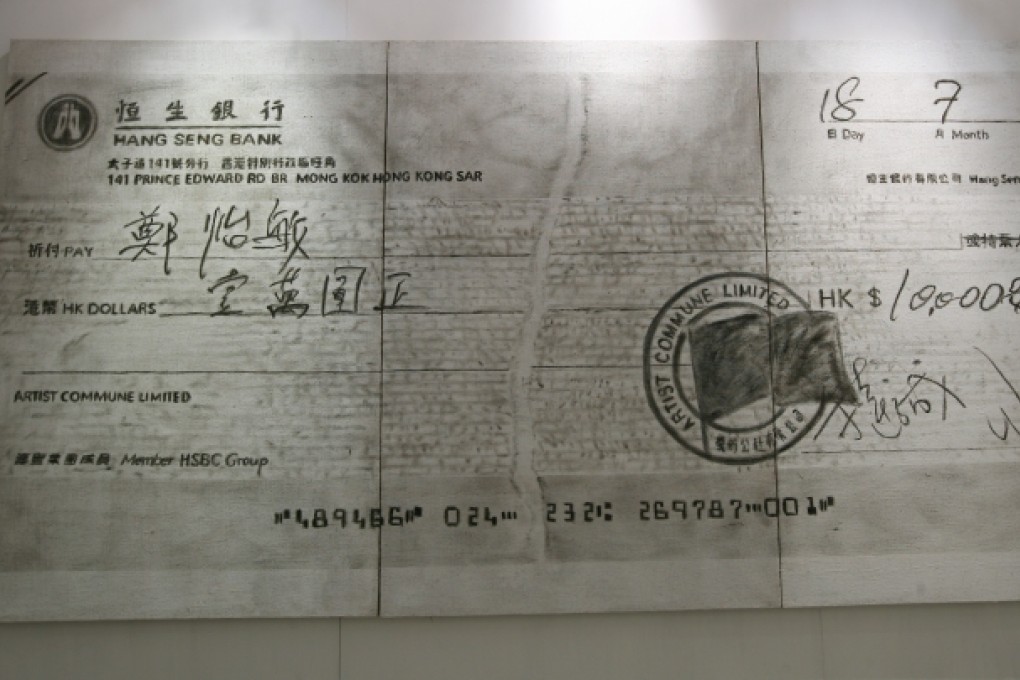 恒生銀行
HANG SENG BANK
太子道141號分行 香港特別行政區旺角
141 PRINCE EDWARD RD BR MONG KOK HONG KONG SAR
18 7
日 Day 月 Month
恒生銀行有限公司 Hang Sen
祈付 PAY 鄭怡敏
或持票人
港幣 HK DOLLARS 壹萬圓正
HK $ 10,000
ARTIST COMMUNE LIMITED
ARTIST COMMUNE LIMITED
藝術公社有限公司
滙豐集團成員 Member HSBC Group
⑈489466⑈ 024⑉ 232⑆ 269787⑉001⑈